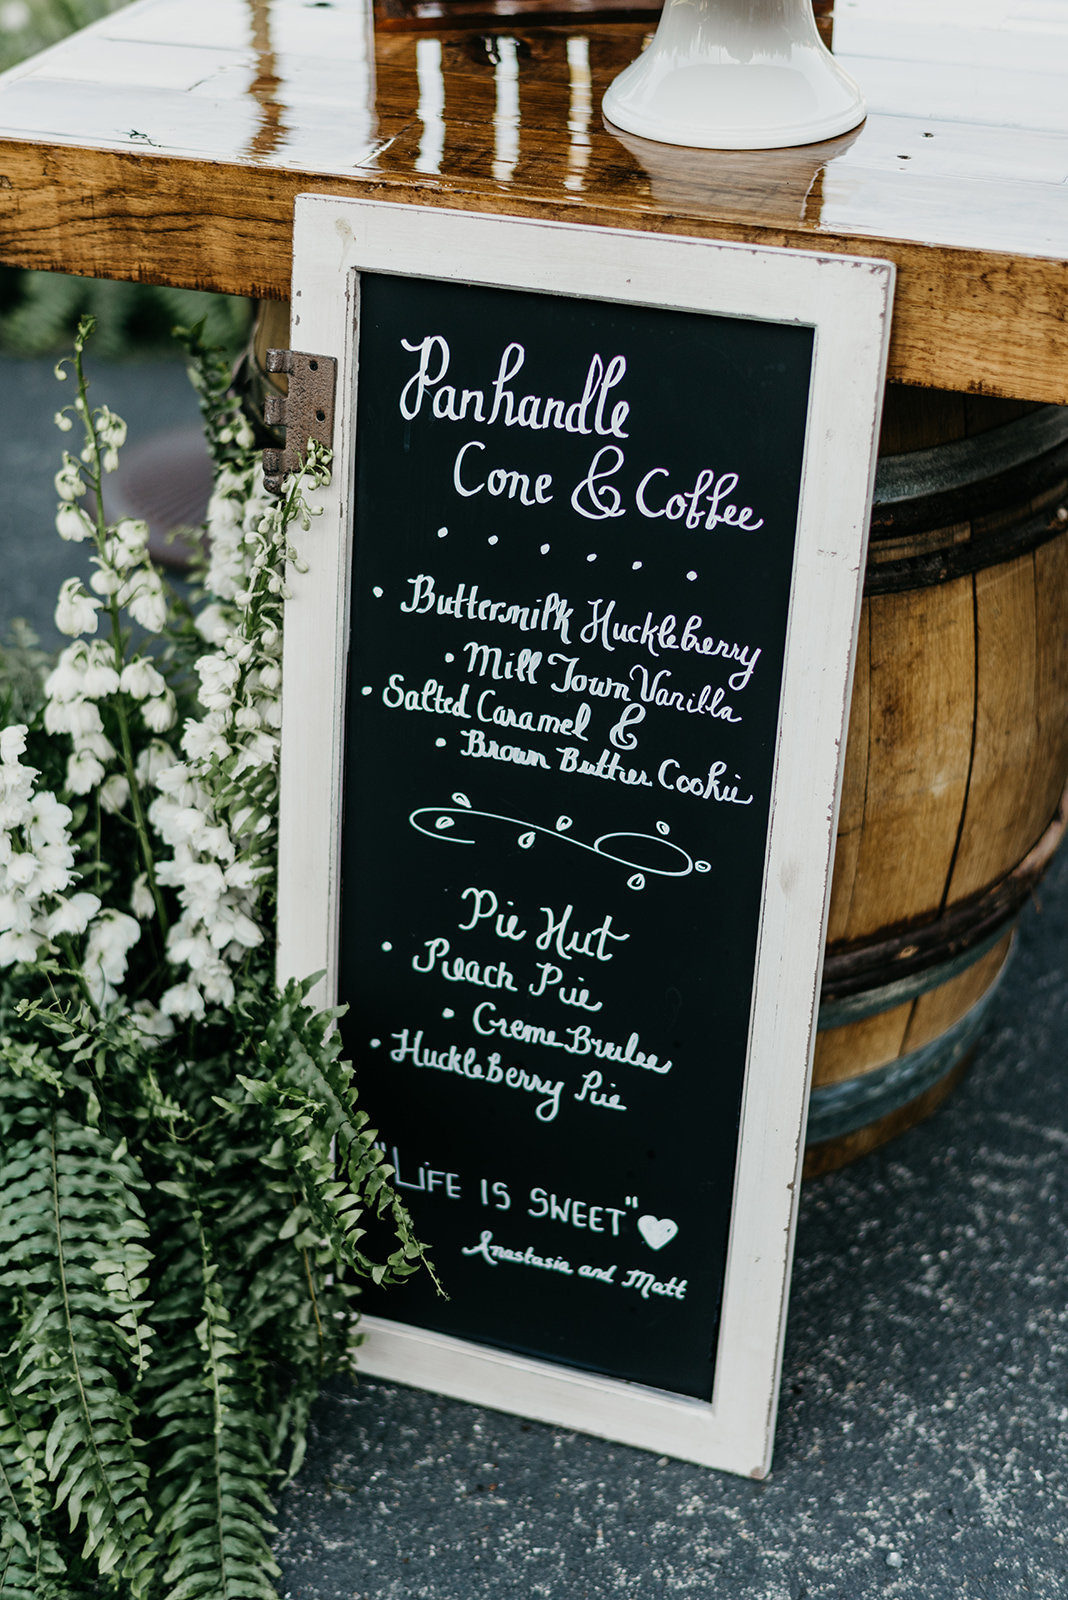 Panhandle
Cone & Coffee
• Buttermilk Huckleberry
• Mill Town Vanilla
• Salted Caramel &
• Brown Butter Cookie
Pie Hut
• Peach Pie
• Creme Brulee
• HuckleBerry Pie
"LIFE IS SWEET"
Anastasia and Matt